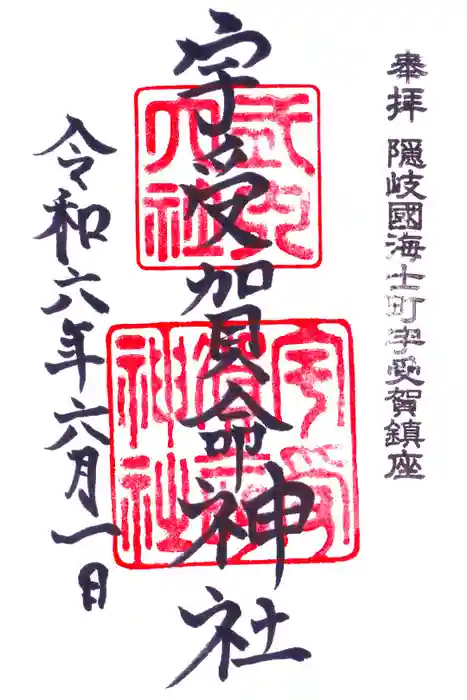 奉拝 隠岐國海士町宇受賀鎮座
宇受賀命神社
式内
大社
宇受
賀命
神社
令和六年六月一日